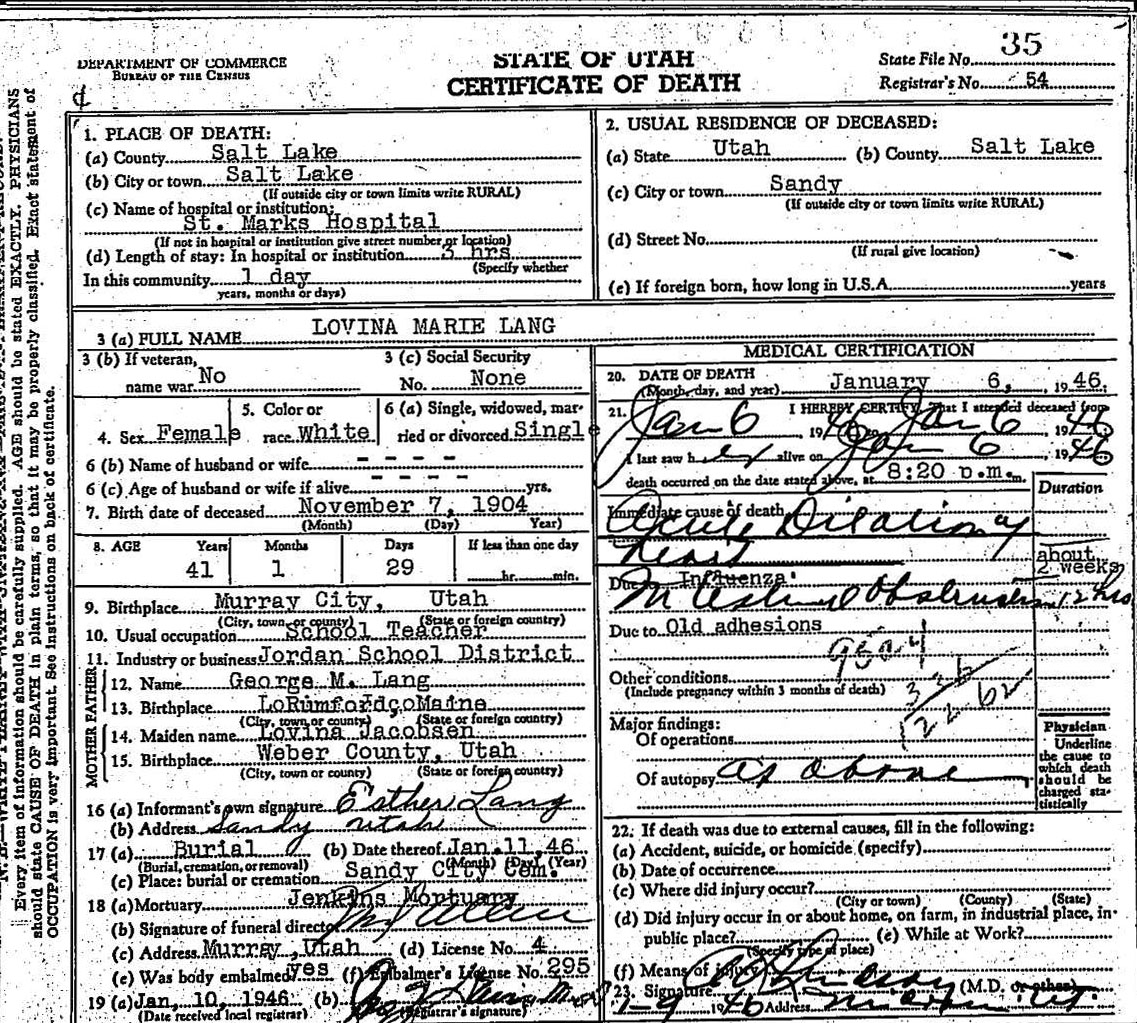 35
DEPARTMENT OF COMMERCE
BUREAU OF THE CENSUS
STATE OF UTAH
CERTIFICATE OF DEATH
State File No.
Registrar's No. 54
Every item of information should be carefully supplied. AGE should be stated EXACTLY. PHYSICIANS
should state CAUSE OF DEATH in plain terms, so that it may be properly classified. Exact statement of
OCCUPATION is very important. See instructions on back of certificate.
1. PLACE OF DEATH:
(a) County Salt Lake
(b) City or town Salt Lake
(If outside city or town limits write RURAL)
(c) Name of hospital or institution:
St. Marks Hospital
(If not in hospital or institution give street number or location)
(d) Length of stay: In hospital or institution hrs
(Specify whether
In this community 1 day
years, months or days)
2. USUAL RESIDENCE OF DECEASED:
(a) State Utah (b) County Salt Lake
(c) City or town Sandy
(If outside city or town limits write RURAL)
(d) Street No.
(If rural give location)
(e) If foreign born, how long in U.S.A. years
3 (a) FULL NAME LOVINA MARIE LANG
3 (b) If veteran, name war No
3 (c) Social Security No. None
4. Sex Female
5. Color or race White
6 (a) Single, widowed, married or divorced Single
6 (b) Name of husband or wife - - - -
6 (c) Age of husband or wife if alive - - - - yrs.
7. Birth date of deceased November 7, 1904
(Month) (Day) Year)
8. AGE Years Months Days If less than one day
41 1 29 hr. min.
9. Birthplace Murray City, Utah
(City, town or county) (State or foreign country)
10. Usual occupation School Teacher
11. Industry or business Jordan School District
MOTHER FATHER
12. Name George M. Lang
13. Birthplace Maine
(City, town or county) (State or foreign country)
14. Maiden name Lovina Jacobsen
15. Birthplace Weber County, Utah
(City, town or county) (State or foreign country)
16 (a) Informant's own signature Esther Lang
(b) Address Sandy Utah
17 (a) Burial (b) Date thereof Jan. 11, 46
(Burial, cremation, or removal) (Month) (Day) (Year)
(c) Place: burial or cremation Sandy City Cem.
18 (a) Mortuary Jenkins Mortuary
(b) Signature of funeral director
(c) Address Murray, Utah (d) License No. 4
(e) Was body embalmed? yes (f) Embalmer's License No. 295
19 (a) Jan, 10, 1946 (b)
(Date received local registrar) (Registrar's signature)
MEDICAL CERTIFICATION
20. DATE OF DEATH
(Month, day, and year) January 6, 1946.
21. I HEREBY CERTIFY, That I attended deceased from
Jan 6 1946 to Jan 6 1946
I last saw her alive on Jan 6 1946
death occurred on the date stated above, at 8:20 p.m. m.
Duration
Immediate cause of death
Acute Dilation of
heart
about
2 weeks
Due to Influenza
Intestinal Obstruction 12 hrs
Due to Old adhesions
Other conditions
(Include pregnancy within 3 months of death)
Major findings:
Of operations
Of autopsy as above
Physician
Underline
the cause to
which death
should be
charged sta-
tistically
22. If death was due to external causes, fill in the following:
(a) Accident, suicide, or homicide (specify)
(b) Date of occurrence
(c) Where did injury occur?
(City or town) (County) (State)
(d) Did injury occur in or about home, on farm, in industrial place, in-
public place? (e) While at Work?
(Specify type of place)
(f) Means of injury
23. Signature (M.D. or other)
1-9 1946 Address